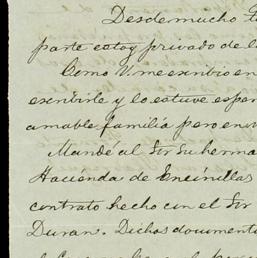 Desde mucho
parte estoy privado de l
Como V me escribio en
escribirle y lo estuve espe
amable familia pero en v
Mandé al Sr su herma
Hacienda de Encinillas
contrato hecho con el Sr
Duran. Dichos document